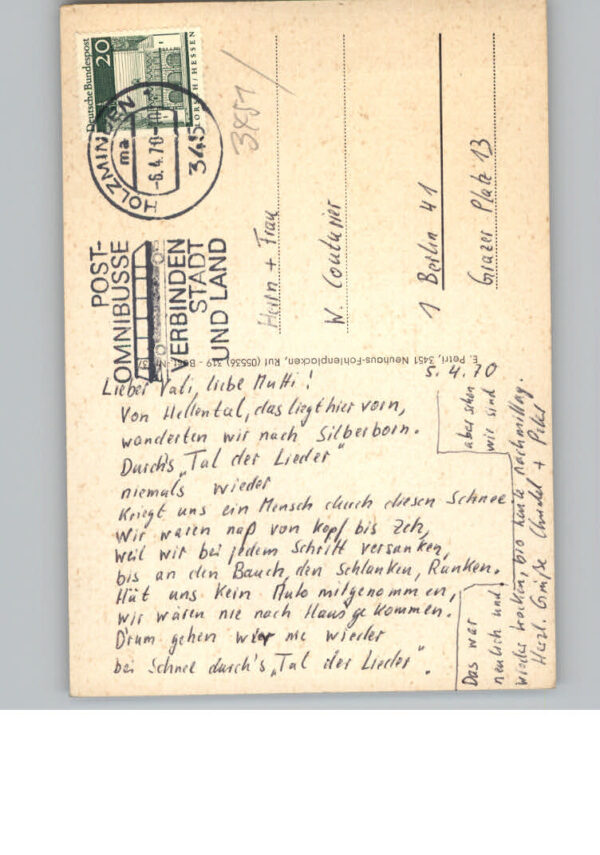 Deutsche Bundespost
20
LORSCH/HESSEN
HOLZMINDEN 1
ma
-6.4.70-
345
POST-
OMNIBUSSE
VERBINDEN
STADT
UND LAND
3451
Herrn + Frau
W. Couturier
1 Berlin 41
Grazer Platz 13
E. Petri, 3451 Neuhaus-Fohlenplacken, Ruf (05536) 319 - Best.-Nr.
5.4.70
Lieber Vati, liebe Mutti!
Von Hellental, das liegt hier vorn,
wanderten wir nach Silberborn.
Durch's „Tal der Lieder"
niemals wieder
kriegt uns ein Mensch durch diesen Schnee.
Wir waren naß von Kopf bis Zeh,
weil wir bei jedem Schritt versanken,
bis an den Bauch, den schlanken, Ranken.
Hät uns kein Auto mitgenommen,
wir wären nie nach Haus gekommen.
Drum gehen wir nie wieder
bei Schnee durch's „Tal der Lieder".
Das war
neulich und
aber schon
wir sind
wieder trocken, bis heute nachmittag.
Herzl. Grüße + Peter